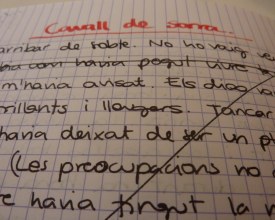 Cavall de sorra.
arribar de roble. No ho vaig ve
havia pogut viure
m'havia avisat. Els dra
rillants i lleugers. Tancar
havia deixat de ser un p
(Les preocupacions no
e havia tingut la